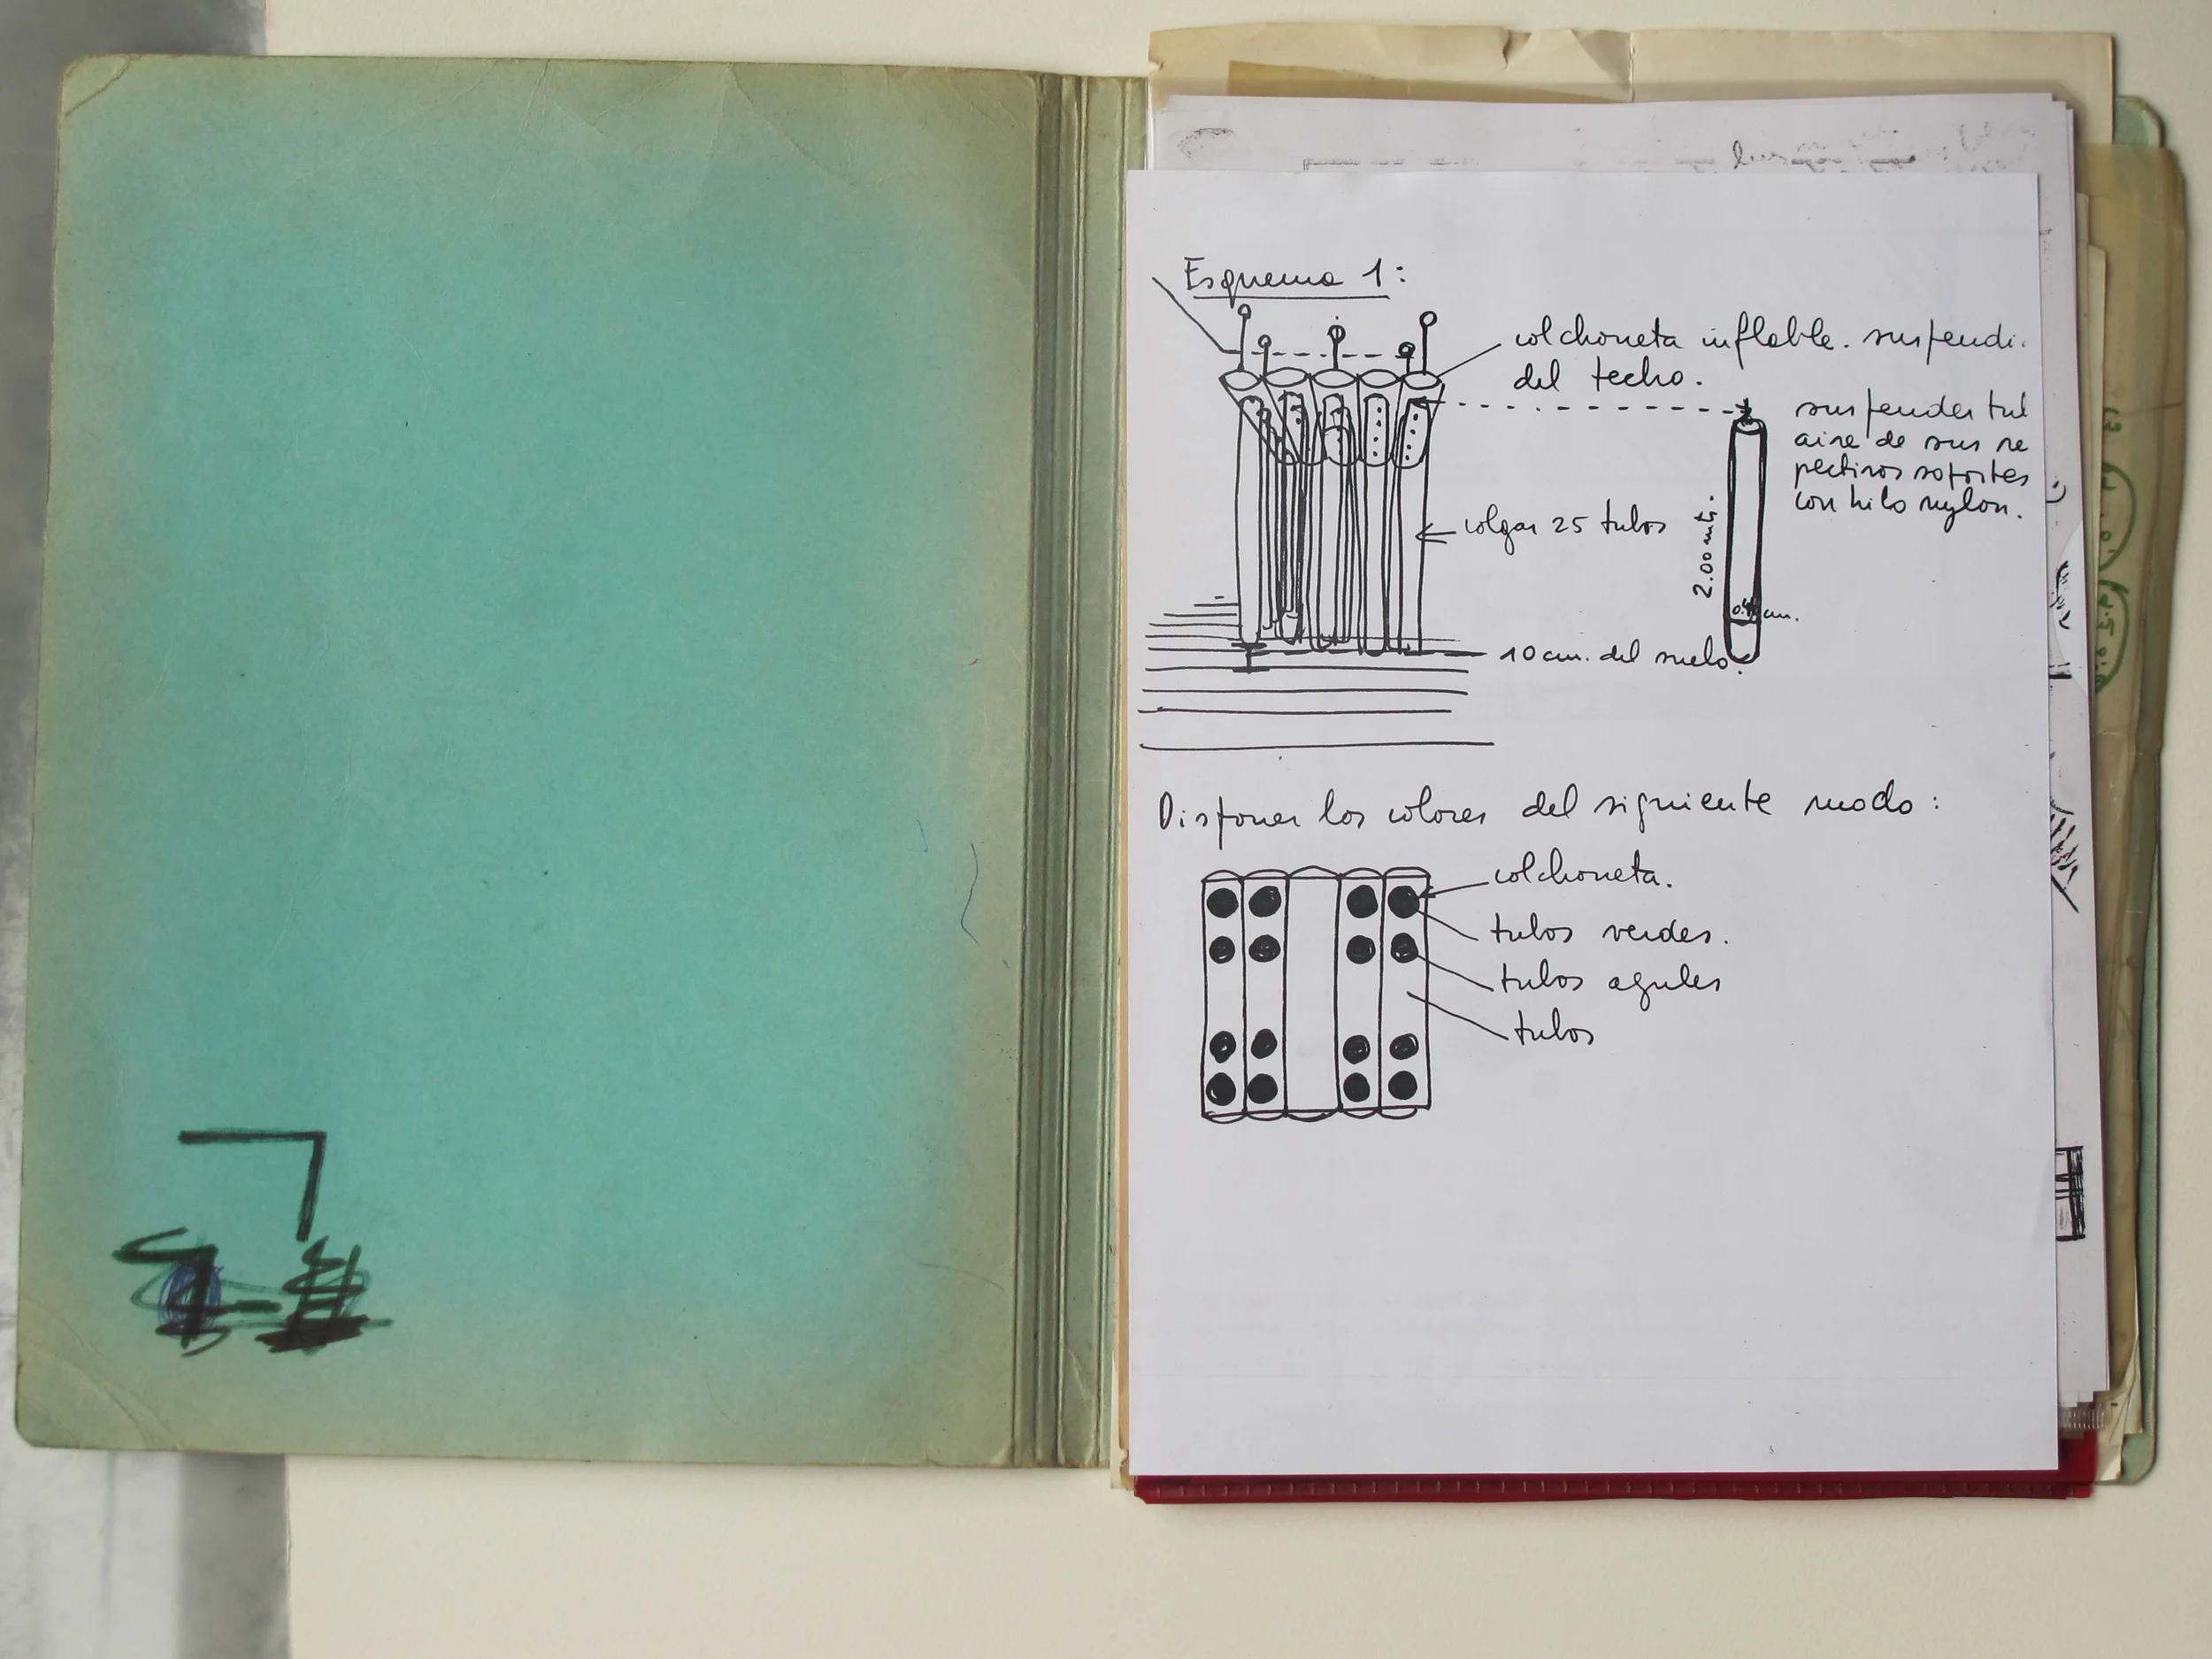 Esquema 1:
colchoneta inflable. suspendi.
del techo.
suspender tub
aire de sus re
pectivos soportes
con hilo nylon.
colgar 25 tubos
2.00 mts.
cm.
10 cm. del suelo.
Disponer los colores del siguiente modo:
colchoneta.
tubos verdes.
tubos azules
tubos